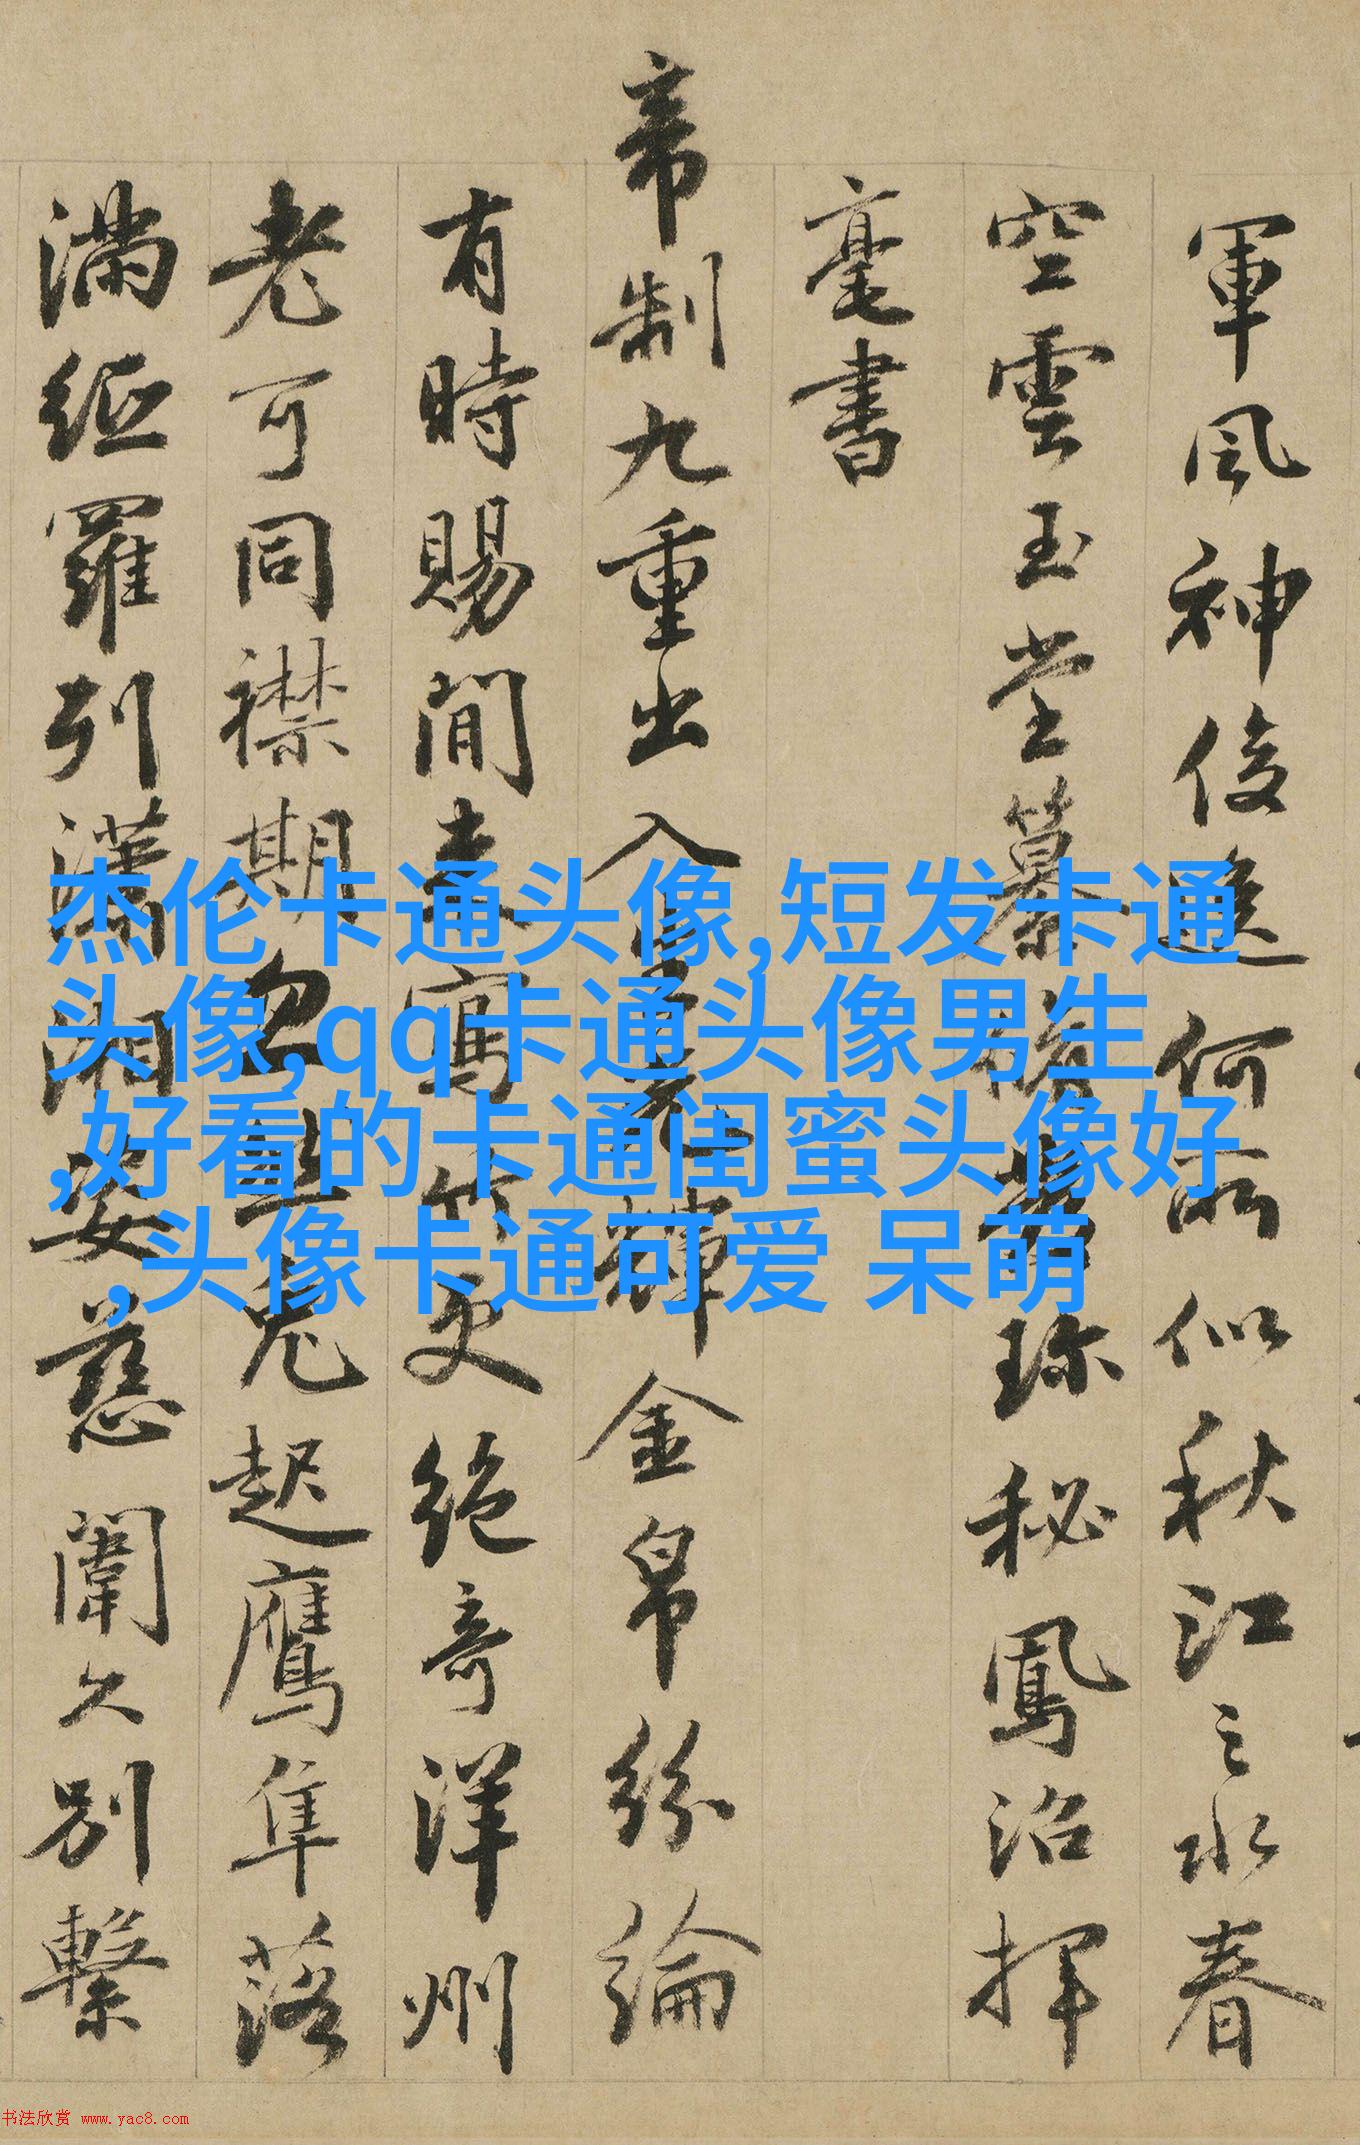 軍風神俊何所似秋江之水春
空雲玉堂珍秘鳳沼揮
毫書
帝制九重出入輝金帛紛綸
有時賜閒來寫竹更絕奇洋州
老可同襟期忽然兔起鷹隼落
滿羅列瀟湘姿慈闈久別繫
杰伦卡通头像,短发卡通
头像,qq卡通头像男生
,好看的卡通闺蜜头像好
,头像卡通可爱 呆萌
书法欣赏 www.yac8.com